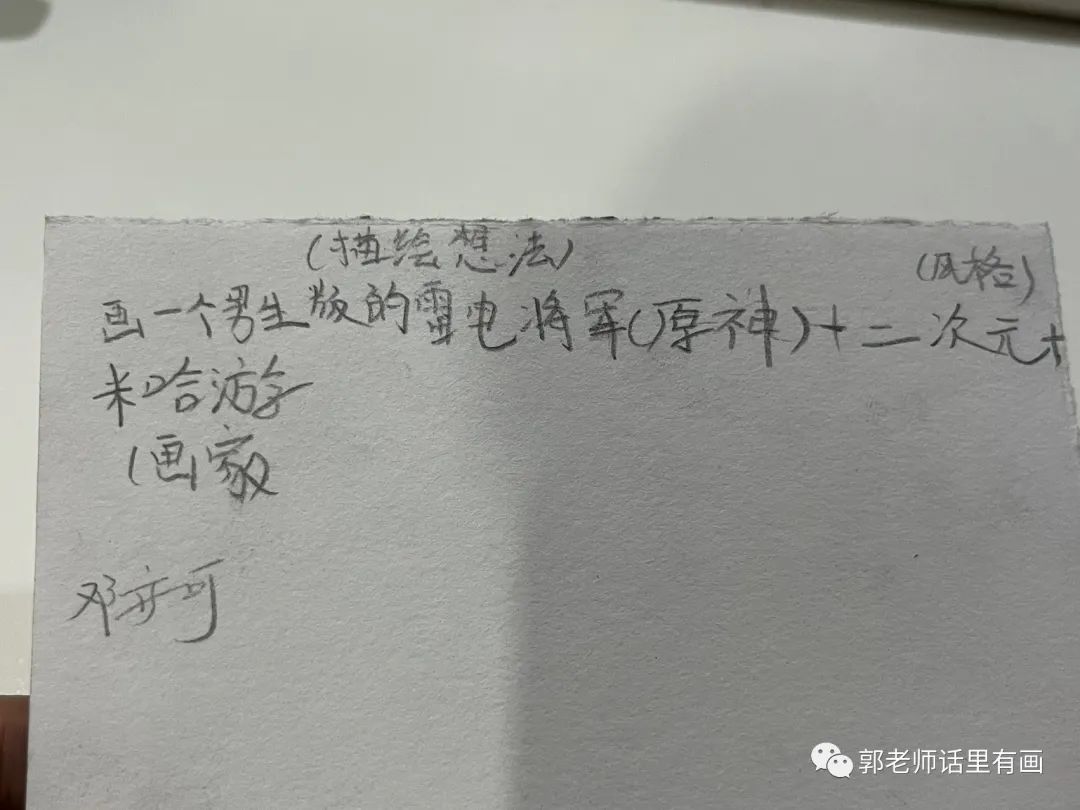 (描绘想法) (风格)
画一个男生版的雷电将军(原神)+二次元+
米哈游
(画家
邓亦可
郭老师话里有画